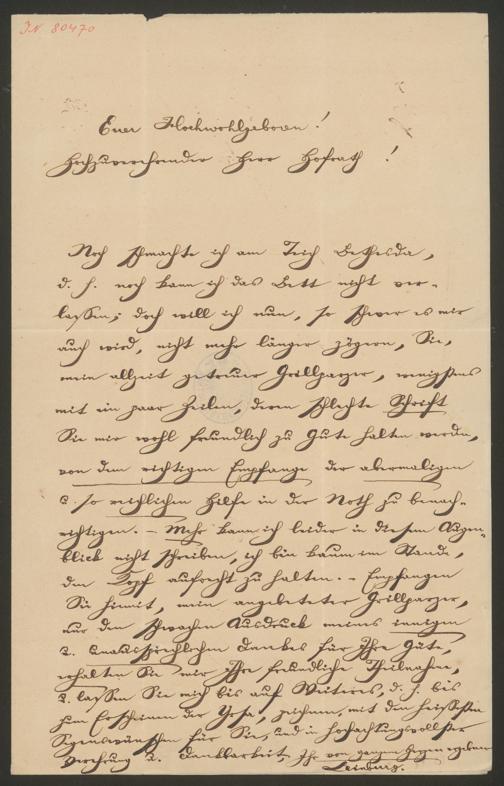 I.N. 80470
Euer Hochwohlgeboren!
Hochzuverehrender Herr Hofrath!
Noch schmachte ich am Teich Bethesda,
d. h. noch kann ich das Bett nicht ver-
lassen; doch will ich nun, so schwer es mir
auch wird, nicht mehr länger zögern, Sie,
mein allzeit getreuer Grillparzer, wenigstens
mit ein paar Zeilen, deren schlechte Schrift
Sie mir wohl freundlich zu Gute halten werden,
von dem richtigen Empfange der abermaligen
u. so reichlichen Hilfe in der Noth zu benach-
richtigen. – Mehr kann ich leider in diesem Augen-
blick nicht schreiben, ich bin kaum im Stande,
den Kopf aufrecht zu halten. – Empfangen
Sie hiemit, mein angebeteter Grillparzer,
nur den schwachen Ausdruck meines innigen
u. unaussprechlichen Dankes für Ihre Güte,
erhalten Sie mir Ihre freundliche Theilnahme,
u. lassen Sie mich bis auf Weiteres, d. h. bis
zum Erscheinen der, zeichnen, mit den heißesten
Segenswünschen für Sie, und in hochachtungsvollster
Verehrung u. Dankbarkeit, Ihr von ganzem Herzen ergebener
Leinburg.